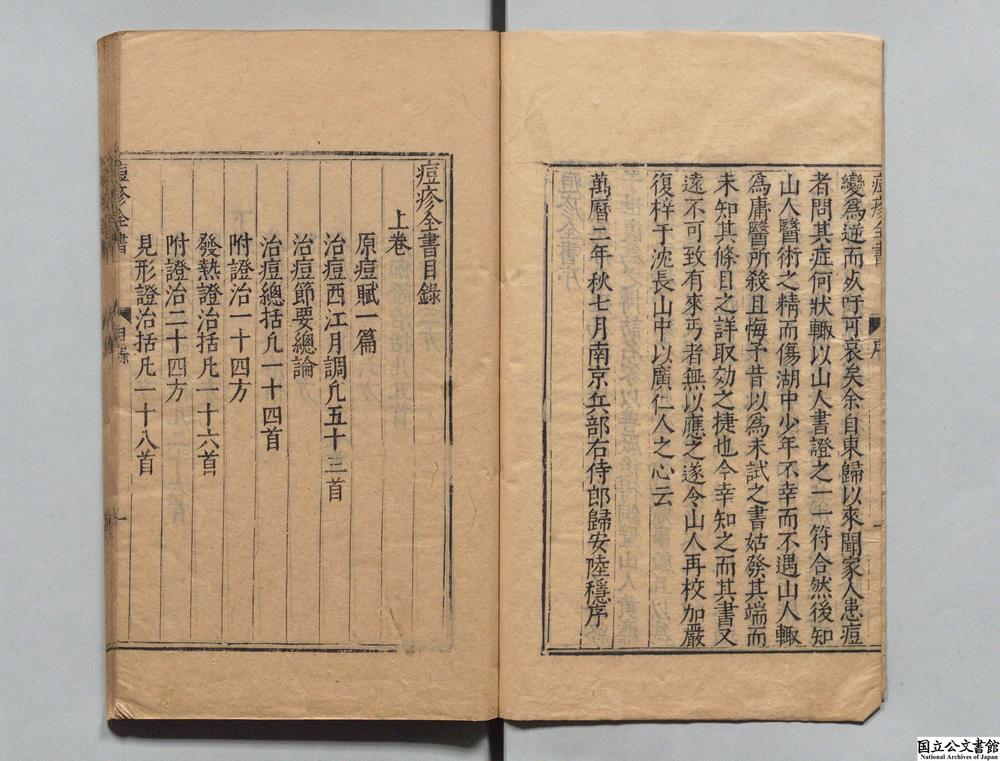 痘疹全書
序
變為逆而必吁可哀矣余自東歸以來聞家人患痘
者問其症何狀輙以山人書證之一一符合然後知
山人醫術之精而傷湖中少年不幸而不遇山人輙
為庸醫所殺且悔予昔以為未試之書姑發其端而
未知其條目之詳取効之捷也今幸知之而其書又
遠不可致有來丐者無以應之遂令山人再校加嚴
復梓于沈長山中以廣仁人之心云
萬曆二年秋七月南京兵部右侍郎歸安陸穩序
痘疹全書目錄
上卷
原痘賦一篇
治痘西江月調凢五十三首
治痘節要總論
治痘總括凢一十四首
附證治一十四方
發熱證治括凢一十六首
附證治二十四方
見形證治括凢一十八首
痘疹全書
目錄
一
国立公文書館
National Archives of Japan